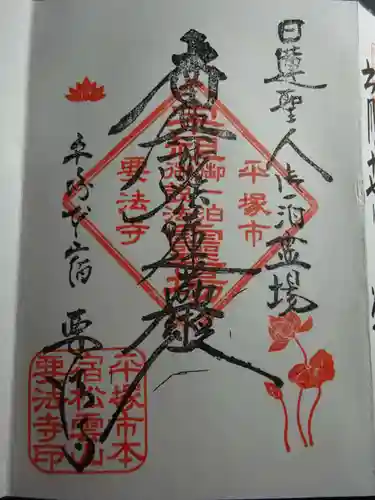 日蓮聖人御一泊霊場
南無妙法蓮華経
平塚市
要法寺
平塚本宿
要法寺
平塚市本
宿松雲山
要法寺印